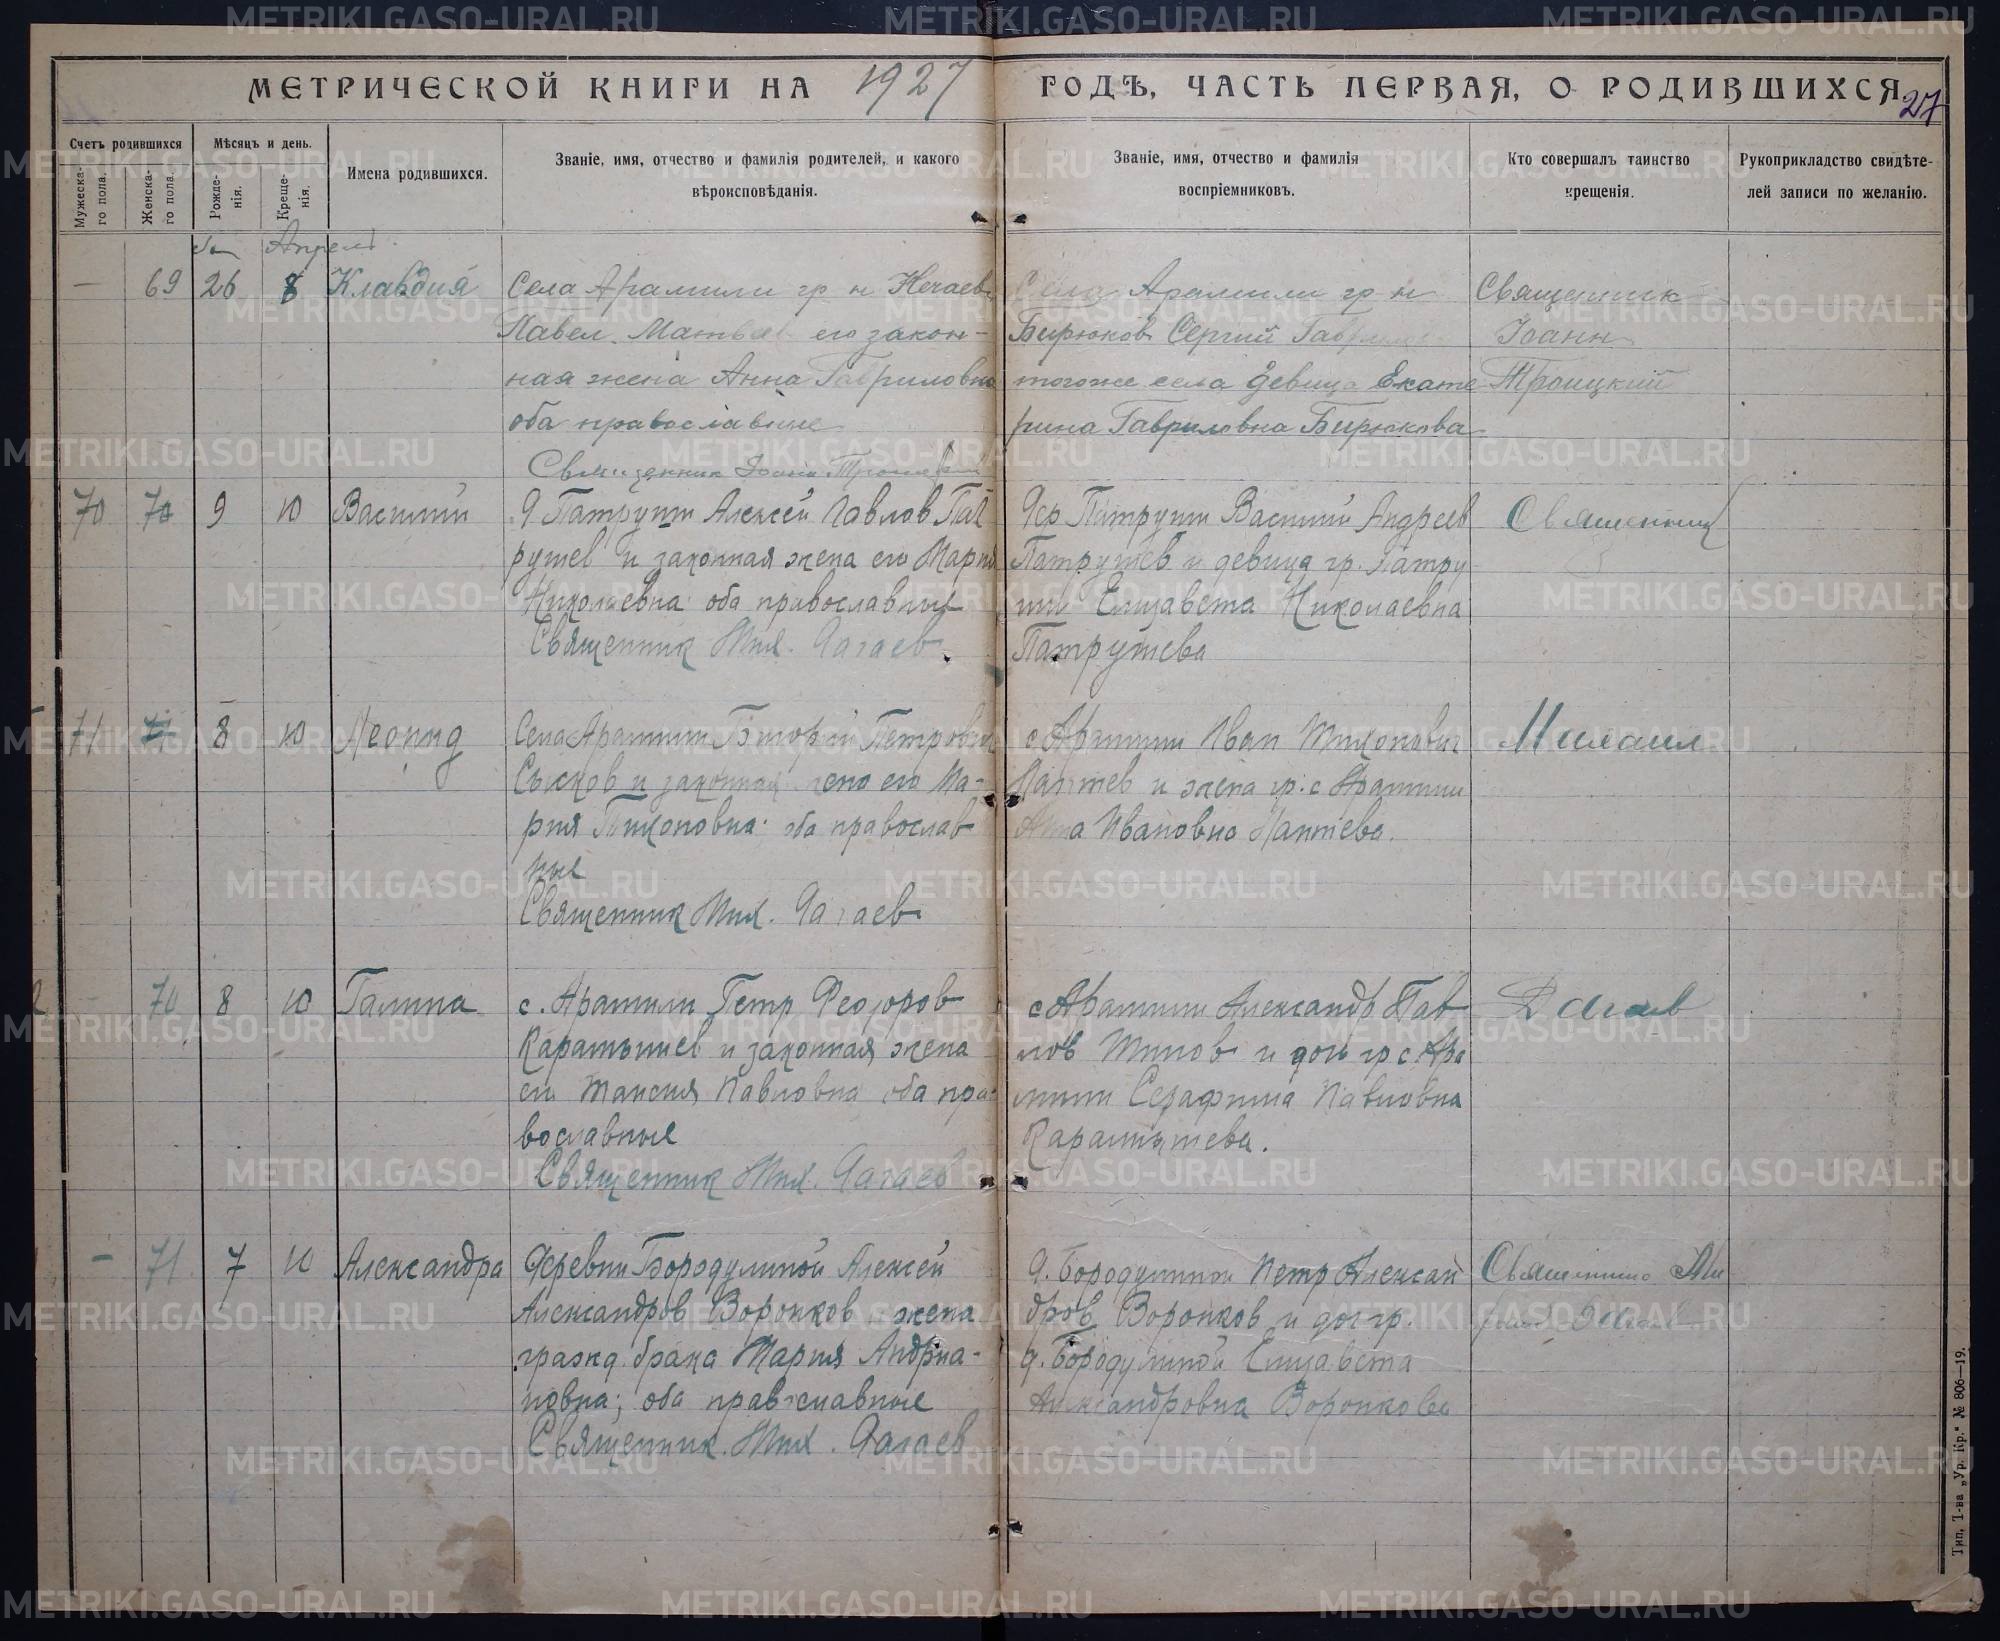 МЕТРИЧЕСКОЙ КНИГИ НА 1927 ГОДЪ, ЧАСТЬ ПЕРВАЯ, О РОДИВШИХСЯ
27
Счетъ родившихся
Мужеска-
го пола.
Женска-
го пола.
Мѣсяцъ и день.
Рожде-
нія.
Креще-
нія.
Имена родившихся.
Званіе, имя, отчество и фамилія родителей, и какого
вѣроисповѣданія.
Званіе, имя, отчество и фамилія
воспріемниковъ.
Кто совершалъ таинство
крещенія.
Рукоприкладство свидѣте-
лей записи по желанію.
Апрель
— 69 26 8 Клавдия
Села Арамили гр н Нечаев
Павел Матвеев его закон-
ная жена Анна Гавриловна
оба православные
Священник Іоанн Троицкий
Села Арамили гр н
Бирюков Сергий Гаврилов
тогоже села девица Екате
рина Гавриловна Бирюкова
Священник
Іоанн
Троицкий
70 70 9 10 Василий
Д Патруши Алексей Павлов Пат
рушев и законная жена его Мария
Николаевна оба православные
Священник Мих. Дагаев
Дер Патруши Василий Андреев
Патрушев и девица гр. Патру
ши Елизавета Николаевна
Патрушева
Священник
71 71 8 10 Леонид
Села Арамили Григорий Петрович
Сысков и законная жена его Ма-
рия Тихоновна оба православ
ные
Священник Мих. Дагаев
с Арамили Иван Тихонович
Лаптев и жена гр. с Арамили
Анна Ивановна Лаптева.
Михаил
— 70 8 10 Галина
с. Арамили Петр Феодоров
Карамышев и законная жена
его Таисия Павловна оба пра-
вославные
Священник Мих. Дагаев
с Арамили Александр Пав
лов Шипов и дочь гр с Ара
мили Серафима Павловна
Карамышева.
Дагаев
— 71 7 10 Александра
Деревни Бородулиной Алексей
Александров Воронков жена
гражд. брака Мария Андриа-
новна; оба православные
Священник. Мих. Дагаев
д. Бородулиной Петр Алексан
дров Воронков и доч гр.
д. Бородулиной Елизавета
Александровна Воронкова
Священник Ми
хаил Дагаев
Тип. Т-ва „Ур. Кр." № 806—19.
METRIKI.GASO-URAL.RU